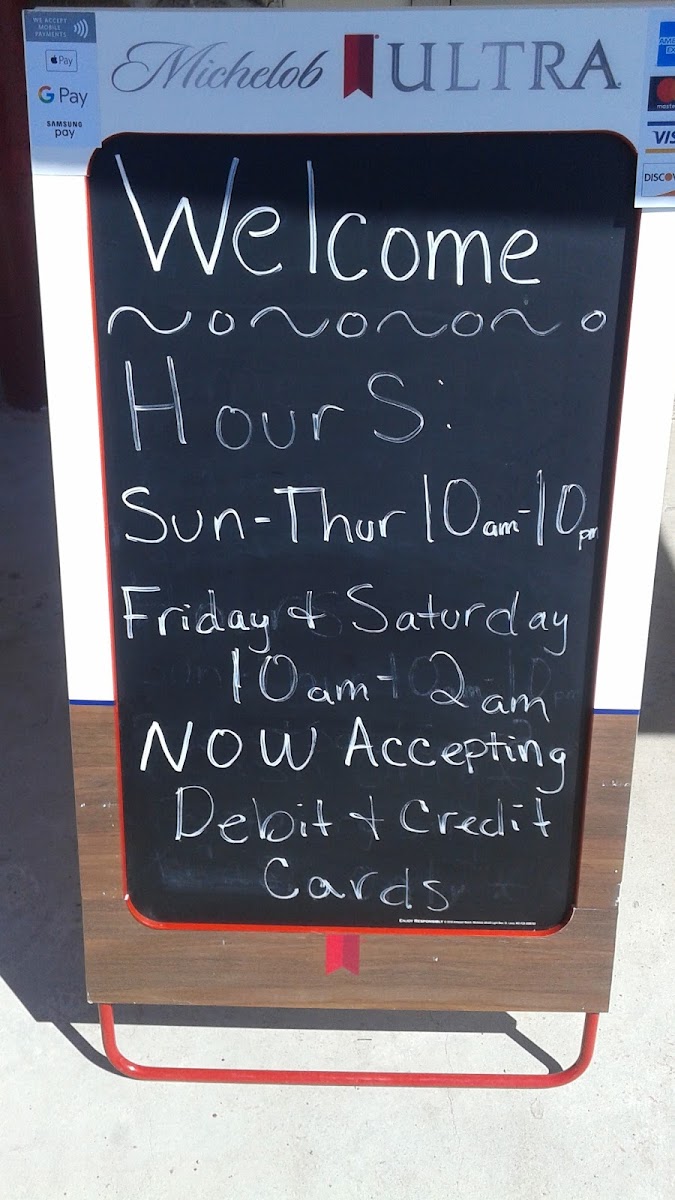 WE ACCEPT
MOBILE
PAYMENTS
Pay
G Pay
SAMSUNG
pay
Michelob ULTRA
VIS
DISCOV
Welcome
Hours:
Sun-Thur 10am-10pm
Friday & Saturday
10am-2am
NOW Accepting
Debit & Credit
Cards
ENJOY RESPONSIBLY